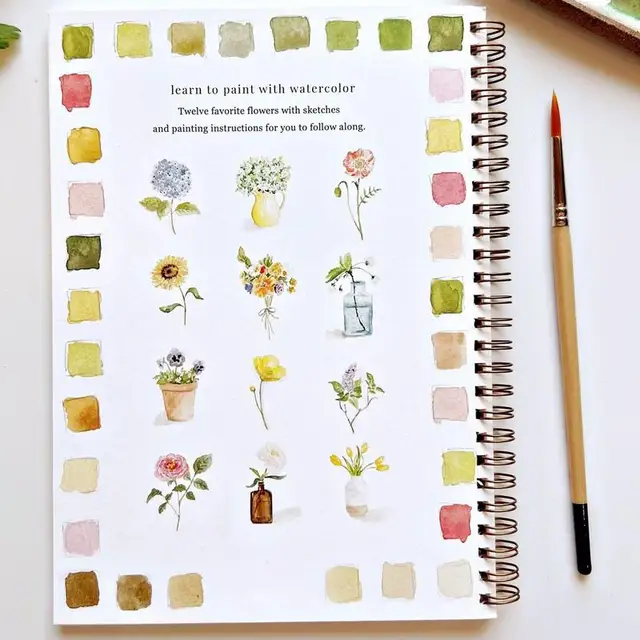 learn to paint with watercolor
Twelve favorite flowers with sketches
and painting instructions for you to follow along.